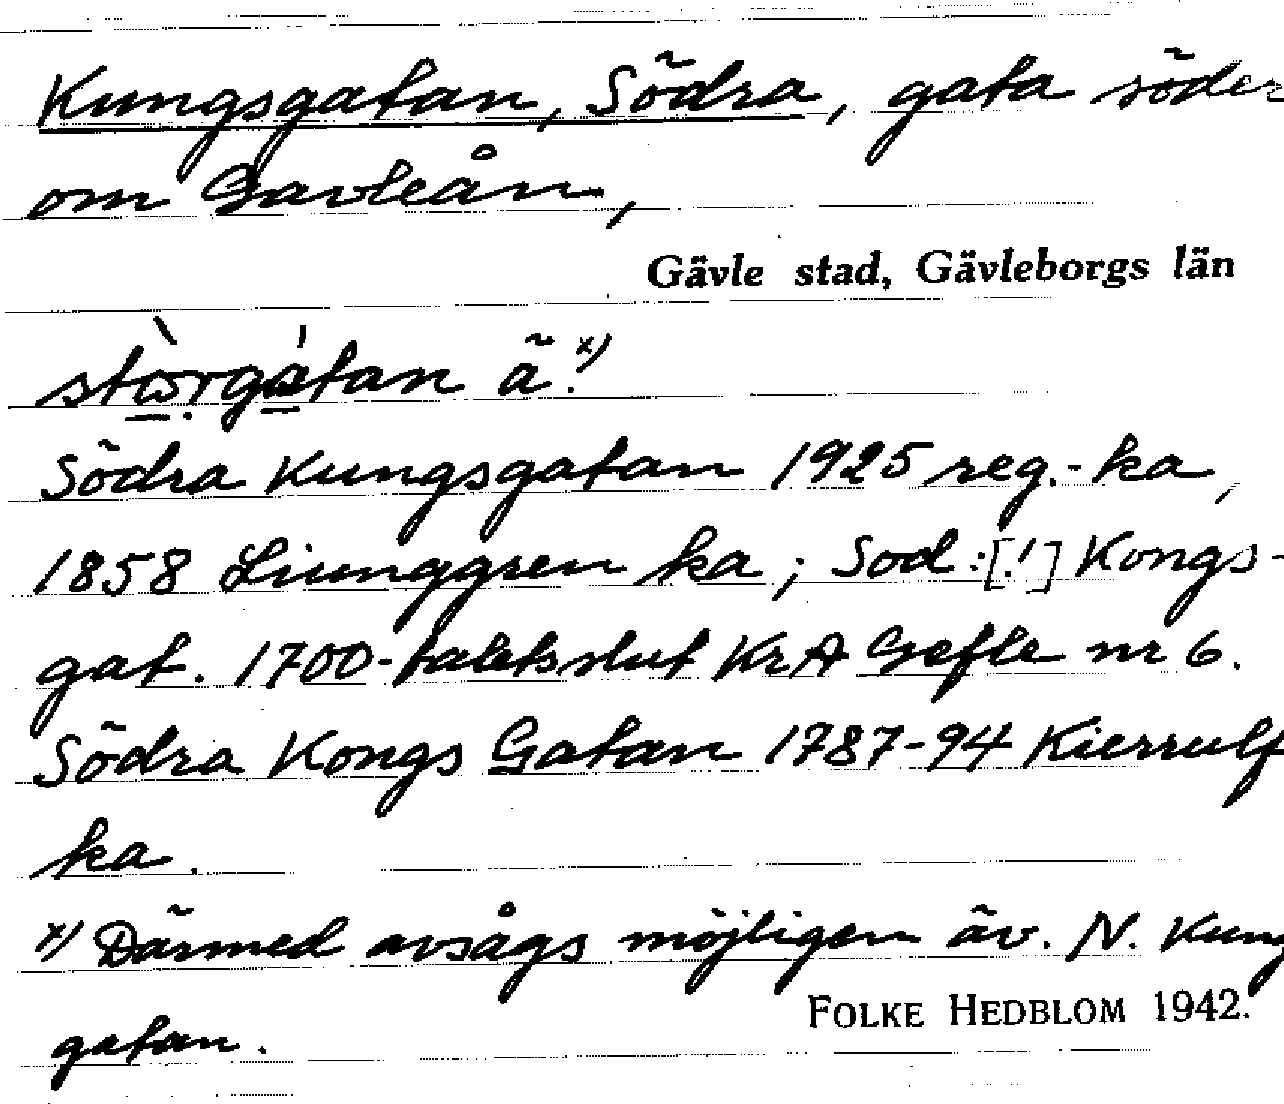 Kungsgatan, Södra, gata söder
om Gavleån,
Gävle stad, Gävleborgs län
stɷ̀rgátan ä.x)
Södra Kungsgatan 1925 reg.-ka,
1858 Liunggren ka; Sod:[!] Kongs-
gat. 1700-talets slut KrA Gefle nr 6.
Södra Kongs Gatan 1787-94 Kierrulf
ka.
x) Därmed avsågs möjligen äv. N. Kung
gatan.
FOLKE HEDBLOM 1942.